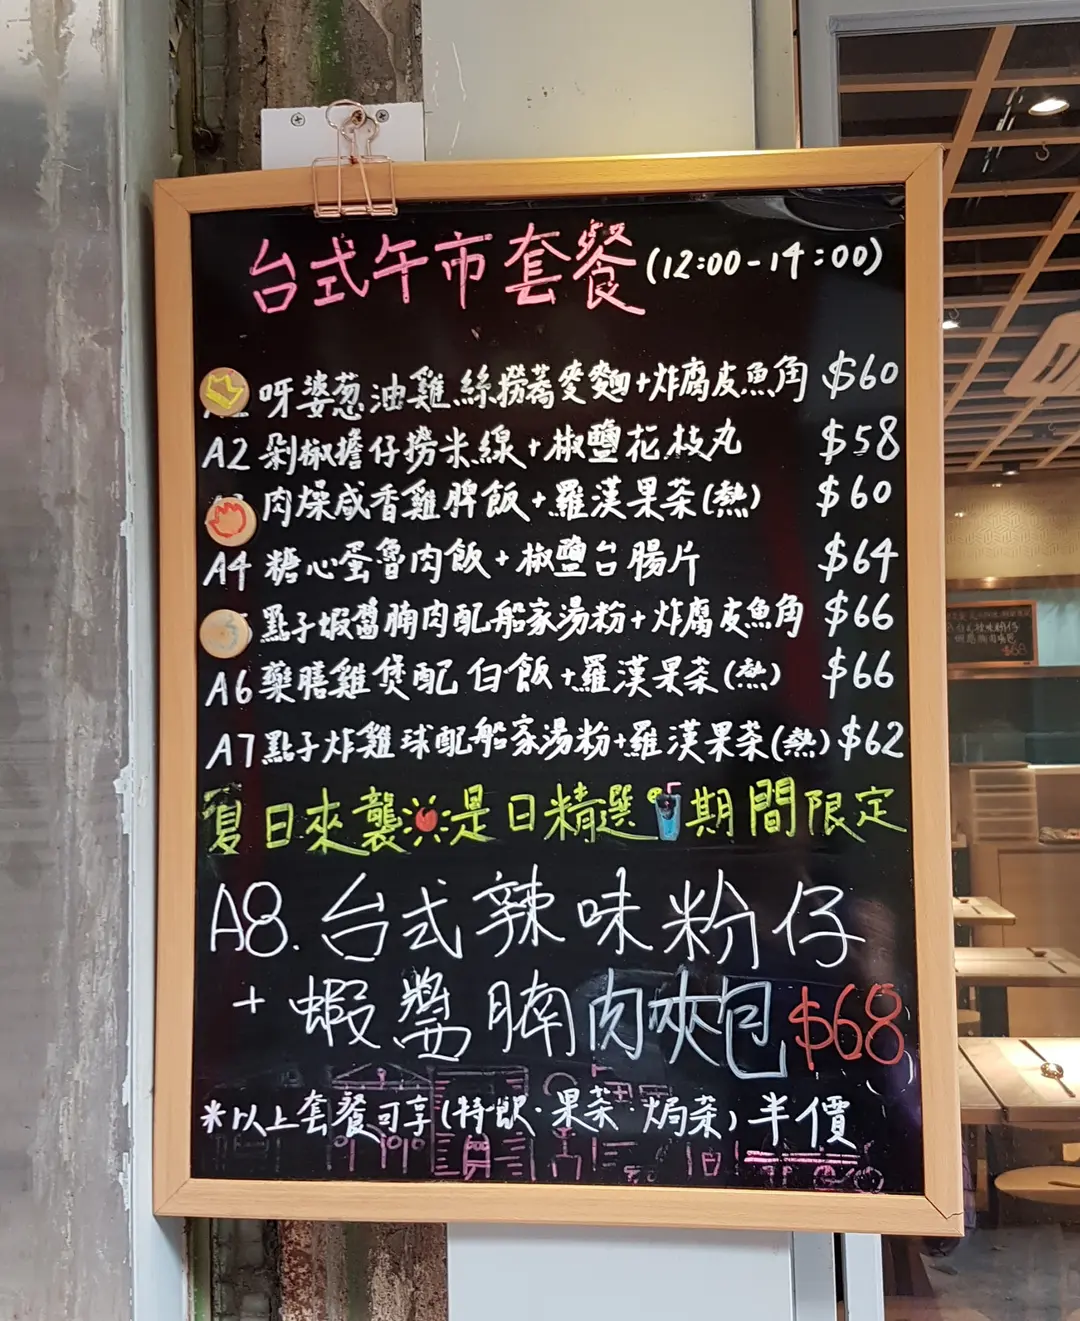 台式午市套餐(12:00-14:00)
呀婆葱油雞絲撈蕎麥麵+炸腐皮魚角 $60
A2 剁椒擔仔撈米線+椒鹽花枝丸 $58
肉燥咸香雞脾飯+羅漢果茶(熱) $60
A4 糖心蛋魯肉飯+椒鹽台腸片 $64
點子蝦醬腩肉配船家湯粉+炸腐皮魚角 $66
A6 藥膳雞煲配白飯+羅漢果茶(熱) $66
A7 點子炸雞球配船家湯粉+羅漢果茶(熱) $62
夏日來襲是日精選期間限定
A8.台式辣味粉仔
+蝦醬腩肉夾包 $68
*以上套餐可享(特飲·果茶·焗菜)半價